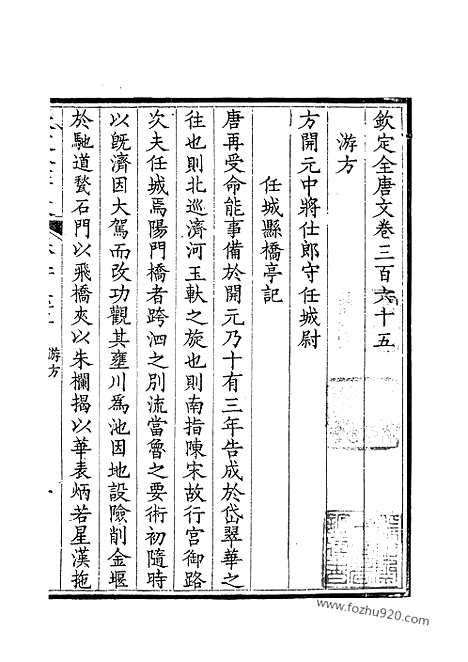 欽定全唐文卷三百六十五
游方
方開元中將仕郎守任城尉
任城縣橋亭記
唐再受命能事備於開元乃十有三年告成於岱翠華之
往也則北巡濟河玉軑之旋也則南指陳宋故行宮御路
次夫任城焉陽門橋者跨泗之別流當魯之要術初隨時
以旣濟因大駕而改功觀其壅川爲池因地設險削金堰
於馳道甃石門以飛橋夾以朱欄揭以華表炳若星漢拖
游方
www.fozhu920.com